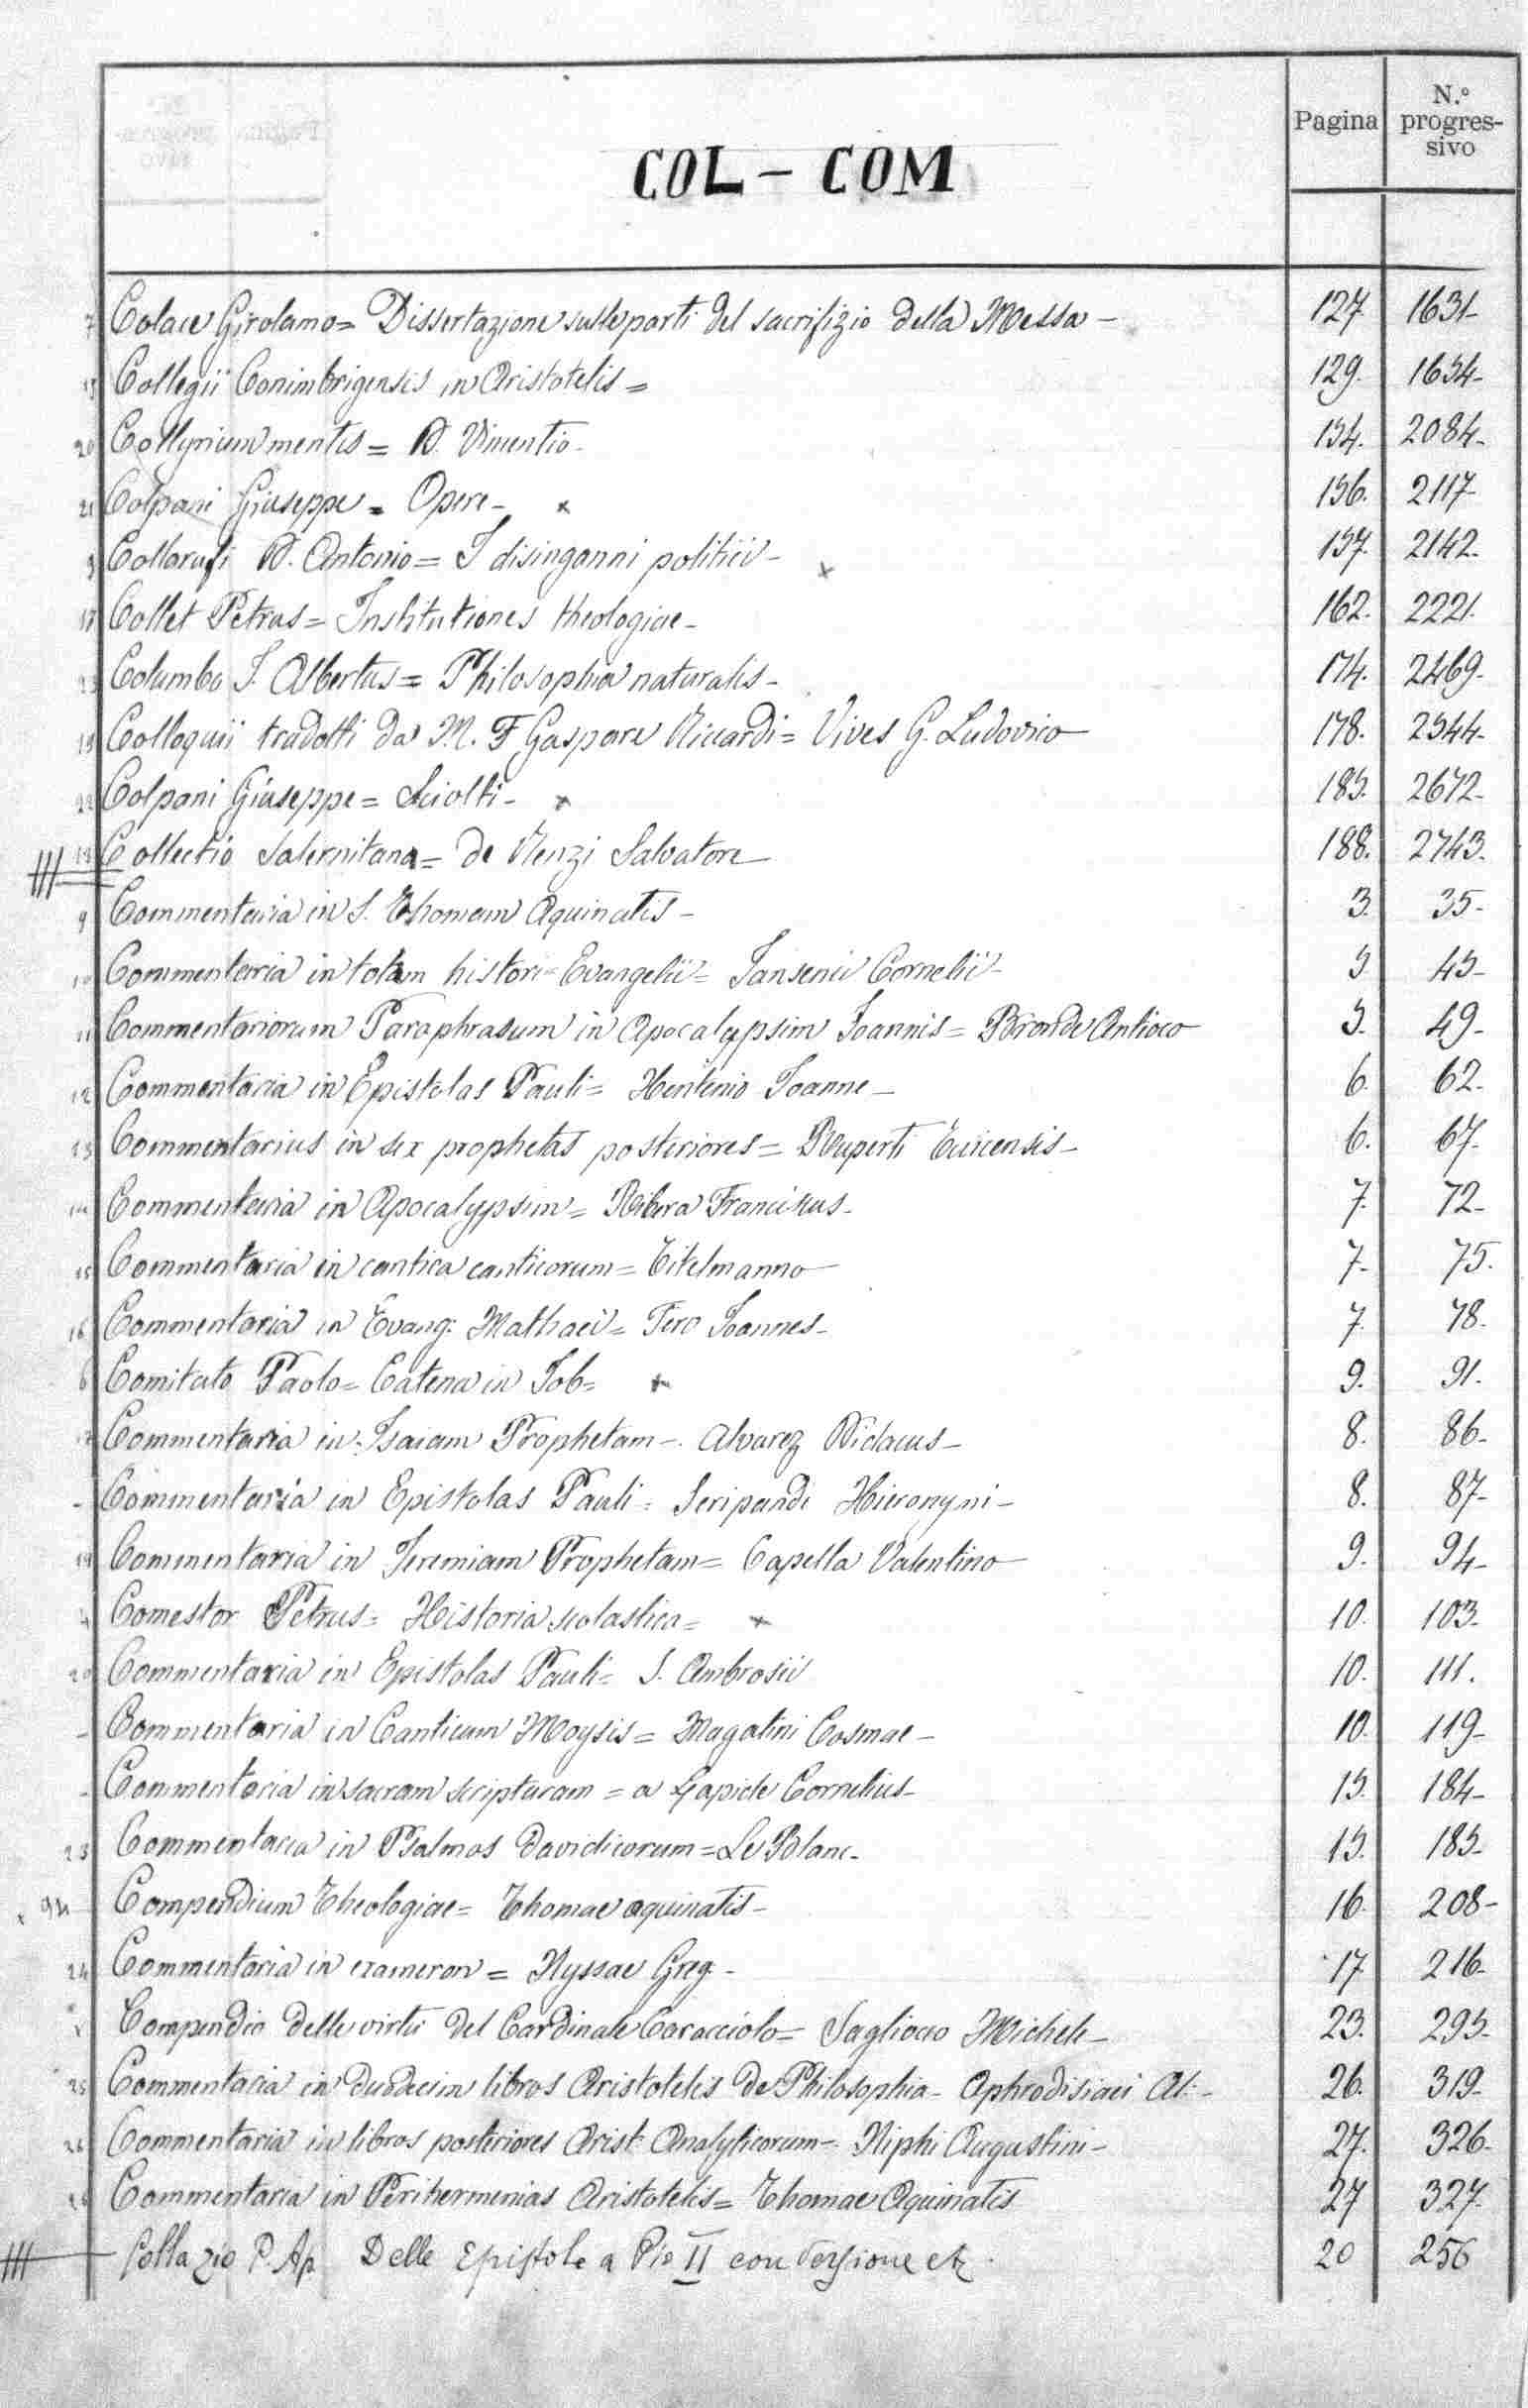 Pagina N.º progres-sivo
COL - COM
7 Colace Girolamo = Dissertazione sulle parti del sacrifizio della Messa - 127 1631-
Collegii Conimbrigensis in Aristotelis = 129. 1654-
20 Collyrium mentis = D. Vincentio - 154. 2084-
21 Colpani Giuseppe = Opere - x 156. 2117-
9 Collarafi D. Antonio = I disinganni politici - x 157. 2142.
17 Collet Petrus = Institutiones theologiae - 162. 2221.
23 Columbo I. Albertus = Philosophia naturalis - 174. 2469-
19 Colloquii tradotti da M. F Gaspare Riccardi = Vives G. Ludovico 178. 2544-
22 Colpani Giuseppe = Sciolti - x 185. 2672-
Collectio Salernitana = de Renzi Salvatore 188. 2743.
9 Commentaria in S. Thomam Aquinatis - 3. 35-
10 Commentaria in totam histori= Evangelii = Jansenii Cornelii - 5 45-
11 Commentariorum Paraphrasum in Apocalypsim Joannis = Antioco 5. 49-
12 Commentaria in Epistolas Pauli = Hentenio Joanne - 6 62.
13 Commentarius in sex prophetas posteriores = Ruperti Tuicensis - 6. 67-
14 Commentaria in Apocalypsim = Ribera Franciscus - 7. 72-
15 Commentaria in cantica canticorum = Titelmanno 7- 75.
16 Commentaria in Evang: Mathaei = Fero Joannes - 7. 78.
6 Comitato Paolo = Catena in Job = x 9. 91.
17 Commentaria in Isaiam Prophetam - Alvarez Didacus - 8. 86-
- Commentaria in Epistolas Pauli = Seripandi Hieronymi - 8. 87-
19 Commentaria in Jeremiam Prophetam = Capella Valentino 9. 94-
4 Comestor Petrus = Historia scolastica = x 10. 103-
20 Commentaria in Epistolas Pauli = S. Ambrosii 10. 111.
- Commentaria in Canticum Moysis = Magalini Cosmae - 10. 119-
- Commentaria in sacram scripturam = a Lapide Cornelius - 15. 184-
23 Commentaria in Psalmos Davidicorum = Le Blanc - 15. 185-
Compendium Theologiae = Thomae aquinatis - 16. 208-
24 Commentaria in exameron = Nyssae Greg - 17 216-
Compendio delle virtù del Cardinale Caracciolo = Sagliocco Michele - 23. 295-
25 Commentaria in duodecim libros Aristotelis de Philosophia - Aphrodisiaei Al: - 26. 319-
26 Commentaria in libros posteriores Arist. Analyticorum - Niphi Augustini - 27. 326-
Commentaria in Perihermenias Aristotelis = Thomae Aquinatis 27 327-
Collazio P. Ap. Delle Epistole a Pio II con versione etc. 20 256